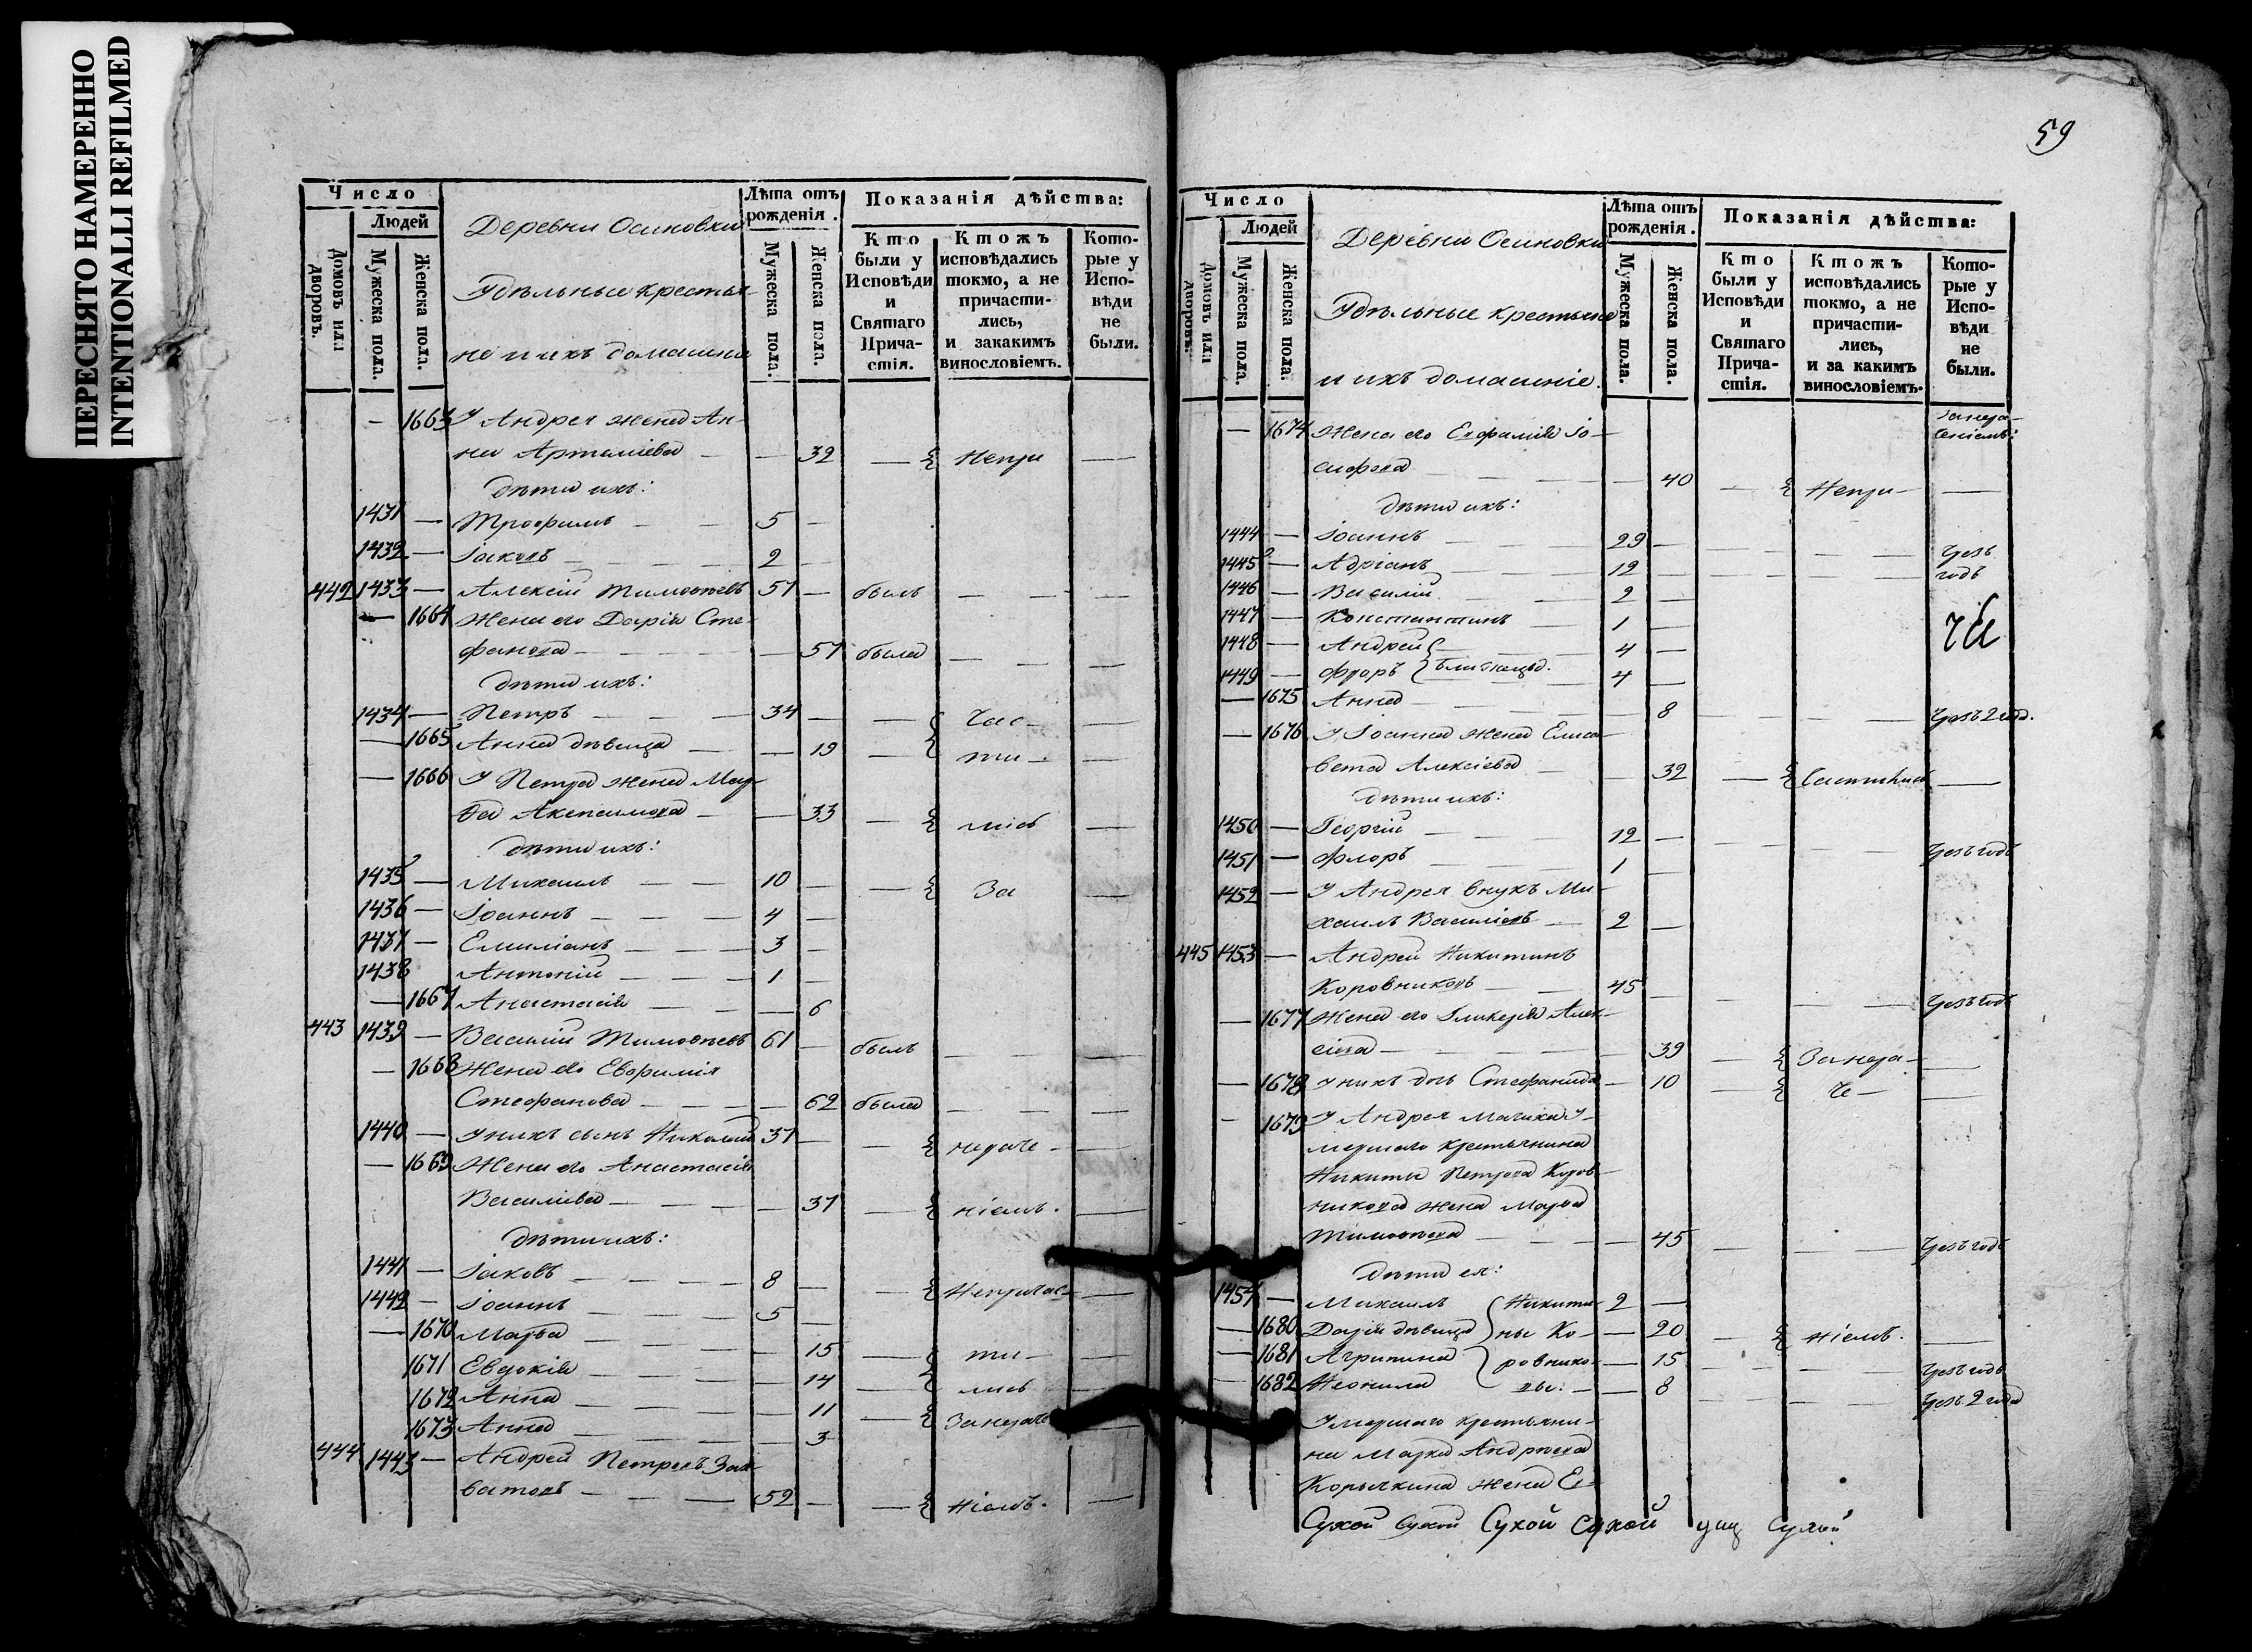 ПЕРЕСНЯТО НАМЕРЕННО
INTENTIONALLI REFILMED
59
Число
Людей
Домовъ или дворовъ.
Мужеска пола.
Женска пола.
Деревни Осиновки
Удѣльные крестья-
не и ихъ домашніе
Лѣта отъ рожденія.
Мужеска пола.
Женска пола.
Показанія дѣйства:
Кто были у Исповѣди и Святаго Причастія.
Ктожъ исповѣдались токмо, а не причастились, и закакимъ винословіемъ.
Которые у Исповѣди не были.
— 1663 У Андрея жена Ан-
на Артеміева — — 32 — Непри —
дѣти ихъ:
1431 — Трофимъ — — 5 —
1432 — Іаковъ — — 2 —
442 1433 — Алексій Тимоѳеевъ 51 — былъ — — —
— 1664 Жена его Дарія Сте-
фанова — — 51 была — — —
дѣти ихъ:
1434 — Петръ — — 34 — — час- —
— 1665 Анна дѣвица — — 19 — ти- —
— 1666 У Петра жена Мар-
ѳа Акепсимова — — 33 — лись —
дѣти ихъ:
1435 — Михаилъ — — 10 — — За —
1436 — Іоаннъ — — 4 —
1437 — Емиліанъ — — 3 —
1438 Антоній — — 1 —
— 1667 Анастасія — — 6
443 1439 — Василій Тимоѳеевъ 61 — былъ — — —
— 1668 Жена его Евфимія
Стефанова — — 62 была — — —
1440 — У нихъ сынъ Николай 37 — — нераче- —
— 1669 Жена его Анастасія
Василіева — — 37 — ніемъ. —
дѣти ихъ:
1441 — Іаковъ — — 8 — — Непричас- —
1442 — Іоаннъ — — 5 —
— 1670 Марѳа — — 15 — ти- —
1671 Евдокія — — 14 — лись —
1672 Анна — — 11 — Занераче
1673 Анна — — 3
444 1443 — Андрей Петровъ
ватовъ — — 52 — — ніемъ. —
Число
Людей
Домовъ или дворовъ.
Мужеска пола.
Женска пола.
Деревни Осиновки
Удѣльные крестьяне
и ихъ домашніе.
Лѣта отъ рожденія.
Мужеска пола.
Женска пола.
Показанія дѣйства:
Кто были у Исповѣди и Святаго Причастія.
Ктожъ исповѣдались токмо, а не причастились, и за какимъ винословіемъ.
Которые у Исповѣди не были.
занера-
ченіемъ:
— 1674 Жена его Евфимія Іо-
сифова — — 40 — Непри- —
дѣти ихъ:
1444 — Іоаннъ — — 29 — — — — Чрезъ
1445 — Адріанъ — — 12 — — — — годъ
1446 — Василій — — 2 —
1447 — Константинъ — 1 —
1448 — Андрей — — 4 —
1449 — Флоръ близнецы. — 4 —
— 1675 Анна — — 8 — — — Чрезъ 2 года.
— 1676 У Іоанна жена Елиса-
вета Алексіева — — 32 — частились —
дѣти ихъ:
1450 — Георгій — — 12 — — — — Чрезъ годъ
1451 — Флоръ — — 1 —
1452 — У Андрея внукъ Ми-
хаилъ Василіевъ — 2 —
445 1453 — Андрей Никитинъ
Коровниковъ — — 45 — — — — Чрезъ годъ
— 1677 Жена его Гликерія Алек-
сіева — — 39 — Занера- —
— 1678 У нихъ дочь Стефанида — 10 — че- —
— 1679 У Андрея мачиха у-
мершаго крестьянина
Никиты Петрова Коров-
никова жена Марѳа
Тимоѳеева — — 45 — — — Чрезъ годъ
дѣти ея:
1454 — Михаилъ Никити- 2 —
— 1680 Дарія дѣвица ны Ко- — 20 — ніемъ. —
— 1681 Агрипина ровнико- — 15 — — — Чрезъ годъ
— 1682 Неонила вы: — — 8 — — — Чрезъ 2 года
Умершаго крестьяни-
на Марка Андреева
Корычкина жена Ев-
Сухой Сухой Сухой Сухой Сухой